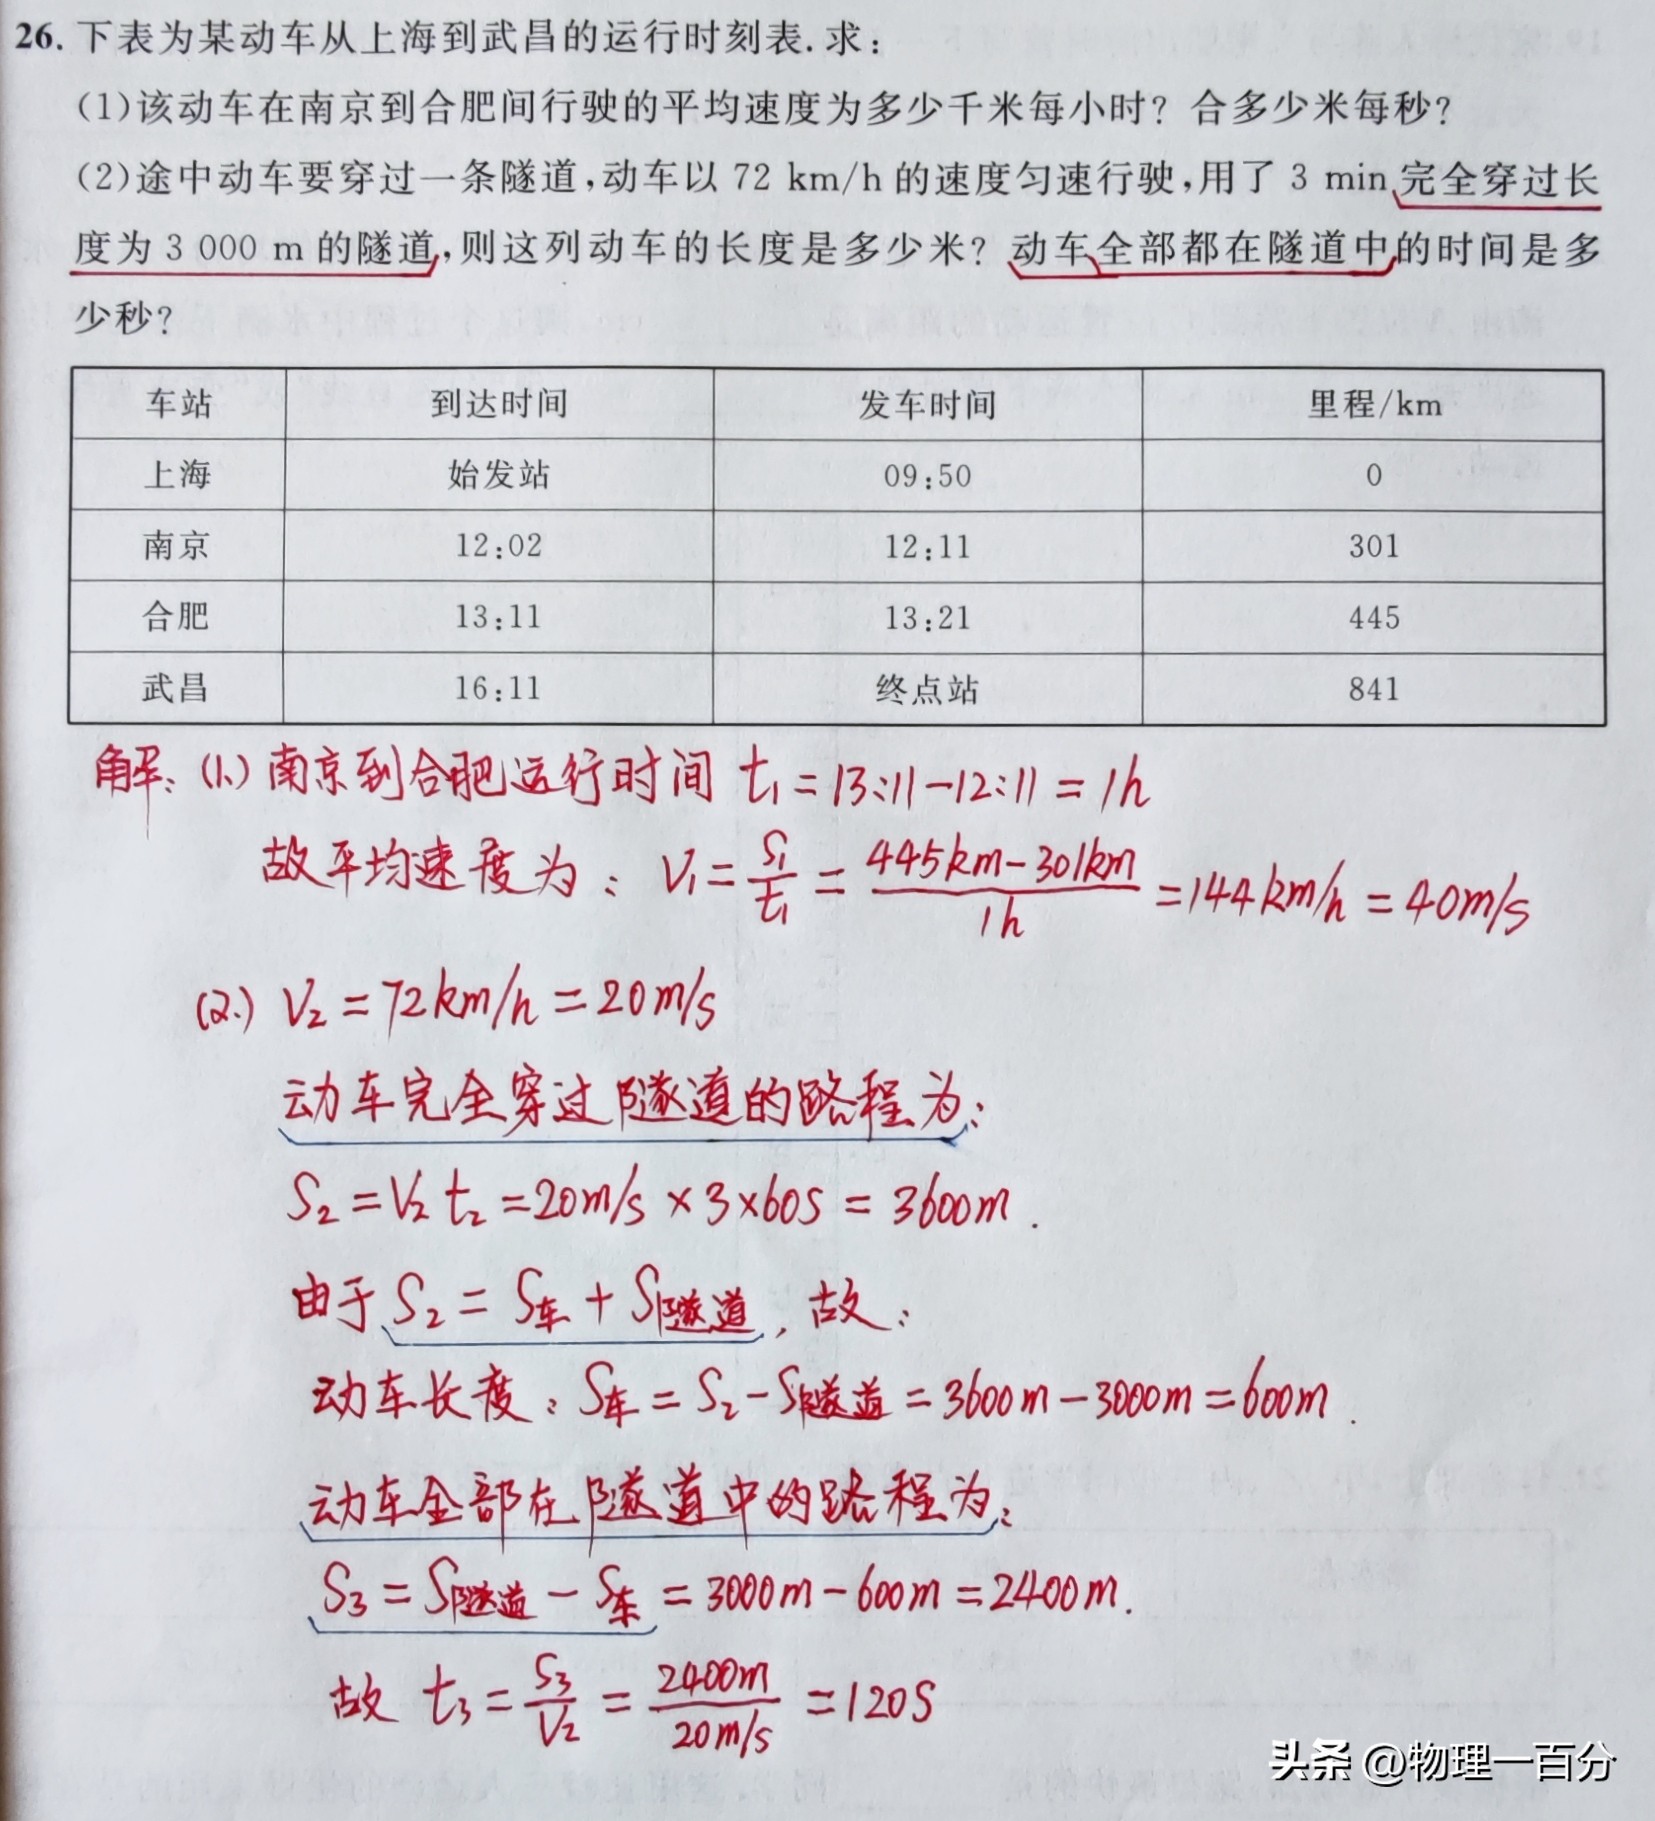 26. 下表为某动车从上海到武昌的运行时刻表.求：
(1)该动车在南京到合肥间行驶的平均速度为多少千米每小时？合多少米每秒？
(2)途中动车要穿过一条隧道,动车以 72 km/h 的速度匀速行驶,用了 3 min 完全穿过长
度为 3 000 m 的隧道,则这列动车的长度是多少米？动车全部都在隧道中的时间是多
少秒？
车站 到达时间 发车时间 里程/km
上海 始发站 09:50 0
南京 12:02 12:11 301
合肥 13:11 13:21 445
武昌 16:11 终点站 841
解：(1.) 南京到合肥运行时间 t₁ = 13:11 - 12:11 = 1h
故平均速度为：V₁ = S₁/t₁ = (445km - 301km)/1h = 144km/h = 40m/s
(2.) V₂ = 72km/h = 20m/s
动车完全穿过隧道的路程为：
S₂ = V₂ t₂ = 20m/s × 3 × 60s = 3600m.
由于 S₂ = S车 + S隧道，故：
动车长度：S车 = S₂ - S隧道 = 3600m - 3000m = 600m.
动车全部在隧道中的路程为：
S₃ = S隧道 - S车 = 3000m - 600m = 2400m.
故 t₃ = S₃/V₂ = 2400m/20m/s = 120s
头条 @物理一百分